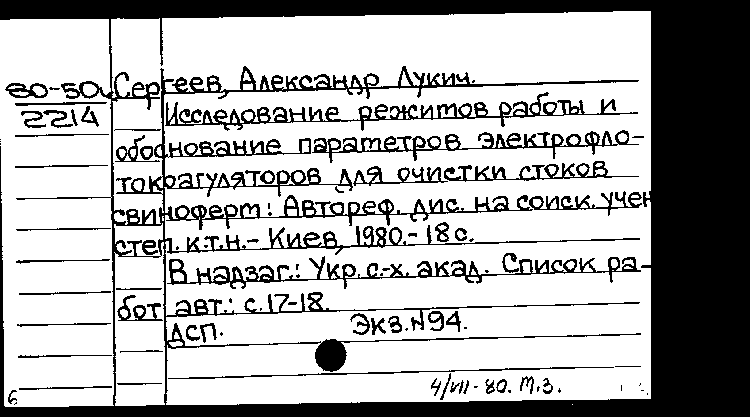 80-50 Сергеев, Александр Лукич.
2214 Исследование режимов работы и
обоснование параметров электрофло-
токоагуляторов для очистки стоков
свиноферм: Автореф. дис. на соиск. учен
степ. к.т.н.- Киев, 1980.- 18 с.
В надзаг.: Укр. с.-х. акад. Список ра-
бот авт.: с.17-18.
ДСП. Экз.N94.
4/VII-80. М.З.
6